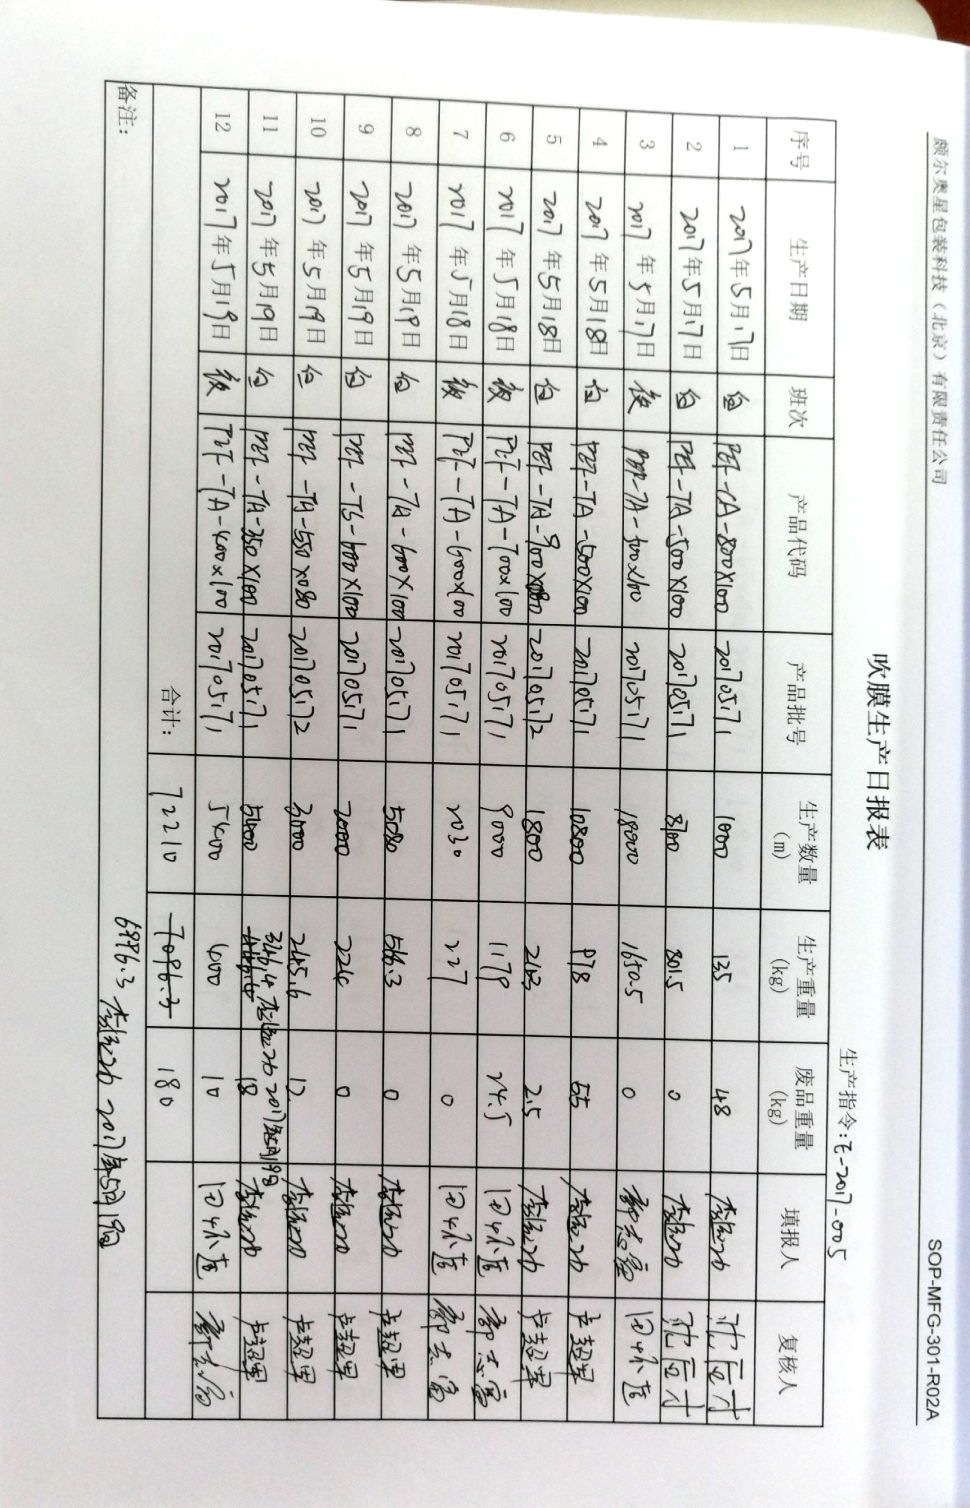 颇尔奥星包装科技（北京）有限责任公司 SOP-MFG-301-R02A
吹膜生产日报表
生产指令:E-2017-005
序号 生产日期 班次 产品代码 产品批号 生产数量（m） 生产重量(kg) 废品重量(kg) 填报人 复核人
1 2017年5月17日 白 PEF-CA-800X100 201705171 1000 135 48 沈后才
2 2017年5月17日 白 PEF-TA-500X100 201705171 8700 801.5 0 沈后才
3 2017年5月17日 夜 PEF-TA-500X100 201705171 18000 1650.5 0 鄢志富 田怀追
4 2017年5月18日 白 PEF-TA-500X100 201705171 10800 978 55 卢超军
5 2017年5月18日 白 201705172 1800 2.5 卢超军
6 2017年5月18日 夜 PEF-TA-700X100 201705171 9000 1179 24.5
7 2017年5月18日 夜 PEF-TA-600X100 201705171 2030 227 0
8 2017年5月19日 白 PEF-TA-600X100 201705171 5080 566.3 0 卢超军
9 2017年5月19日 白 PEF-TS-600X100 201705171 2000 224 0 卢超军
10 2017年5月19日 白 PEF-TA-550X080 201705172 3000 245.6 12 卢超军
346.4 2017年5月19日
11 2017年5月19日 白 PEF-TA-350X100 201705171 5400 446.4 18 卢超军
12 2017年5月19日 夜 PEF-TA-400X100 201705171 5400 400 10
合计: 72210 7096.3 180
备注: 6996.3 2017年5月19日